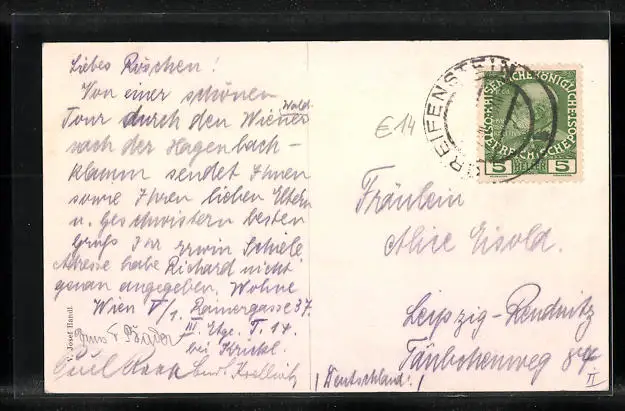 Liebes Röschen!
Von einer schönen
Tour durch den Wiener
Wald
nach der Hagenbach-
klamm sendet Ihnen
sowie Ihren lieben Eltern
u. Geschwistern besten
Gruß Ihr Erwin Schiele
Adresse habe Richard nicht
genau angegeben. Wohne
Wien V/1. Rainergasse 37.
III. Etge. T. 14.
bei Krickl.
Gruss v. Bader
V. Josef Handl.
€14
GREIFENSTEIN
KAISERLICHE KÖNIGLICHE
ÖSTERREICHISCHE POST
5 HELLER 5
Fräulein
Alice Eisold.
Leipzig-Reudnitz
Täubchenweg 87
II
(Deutschland.)